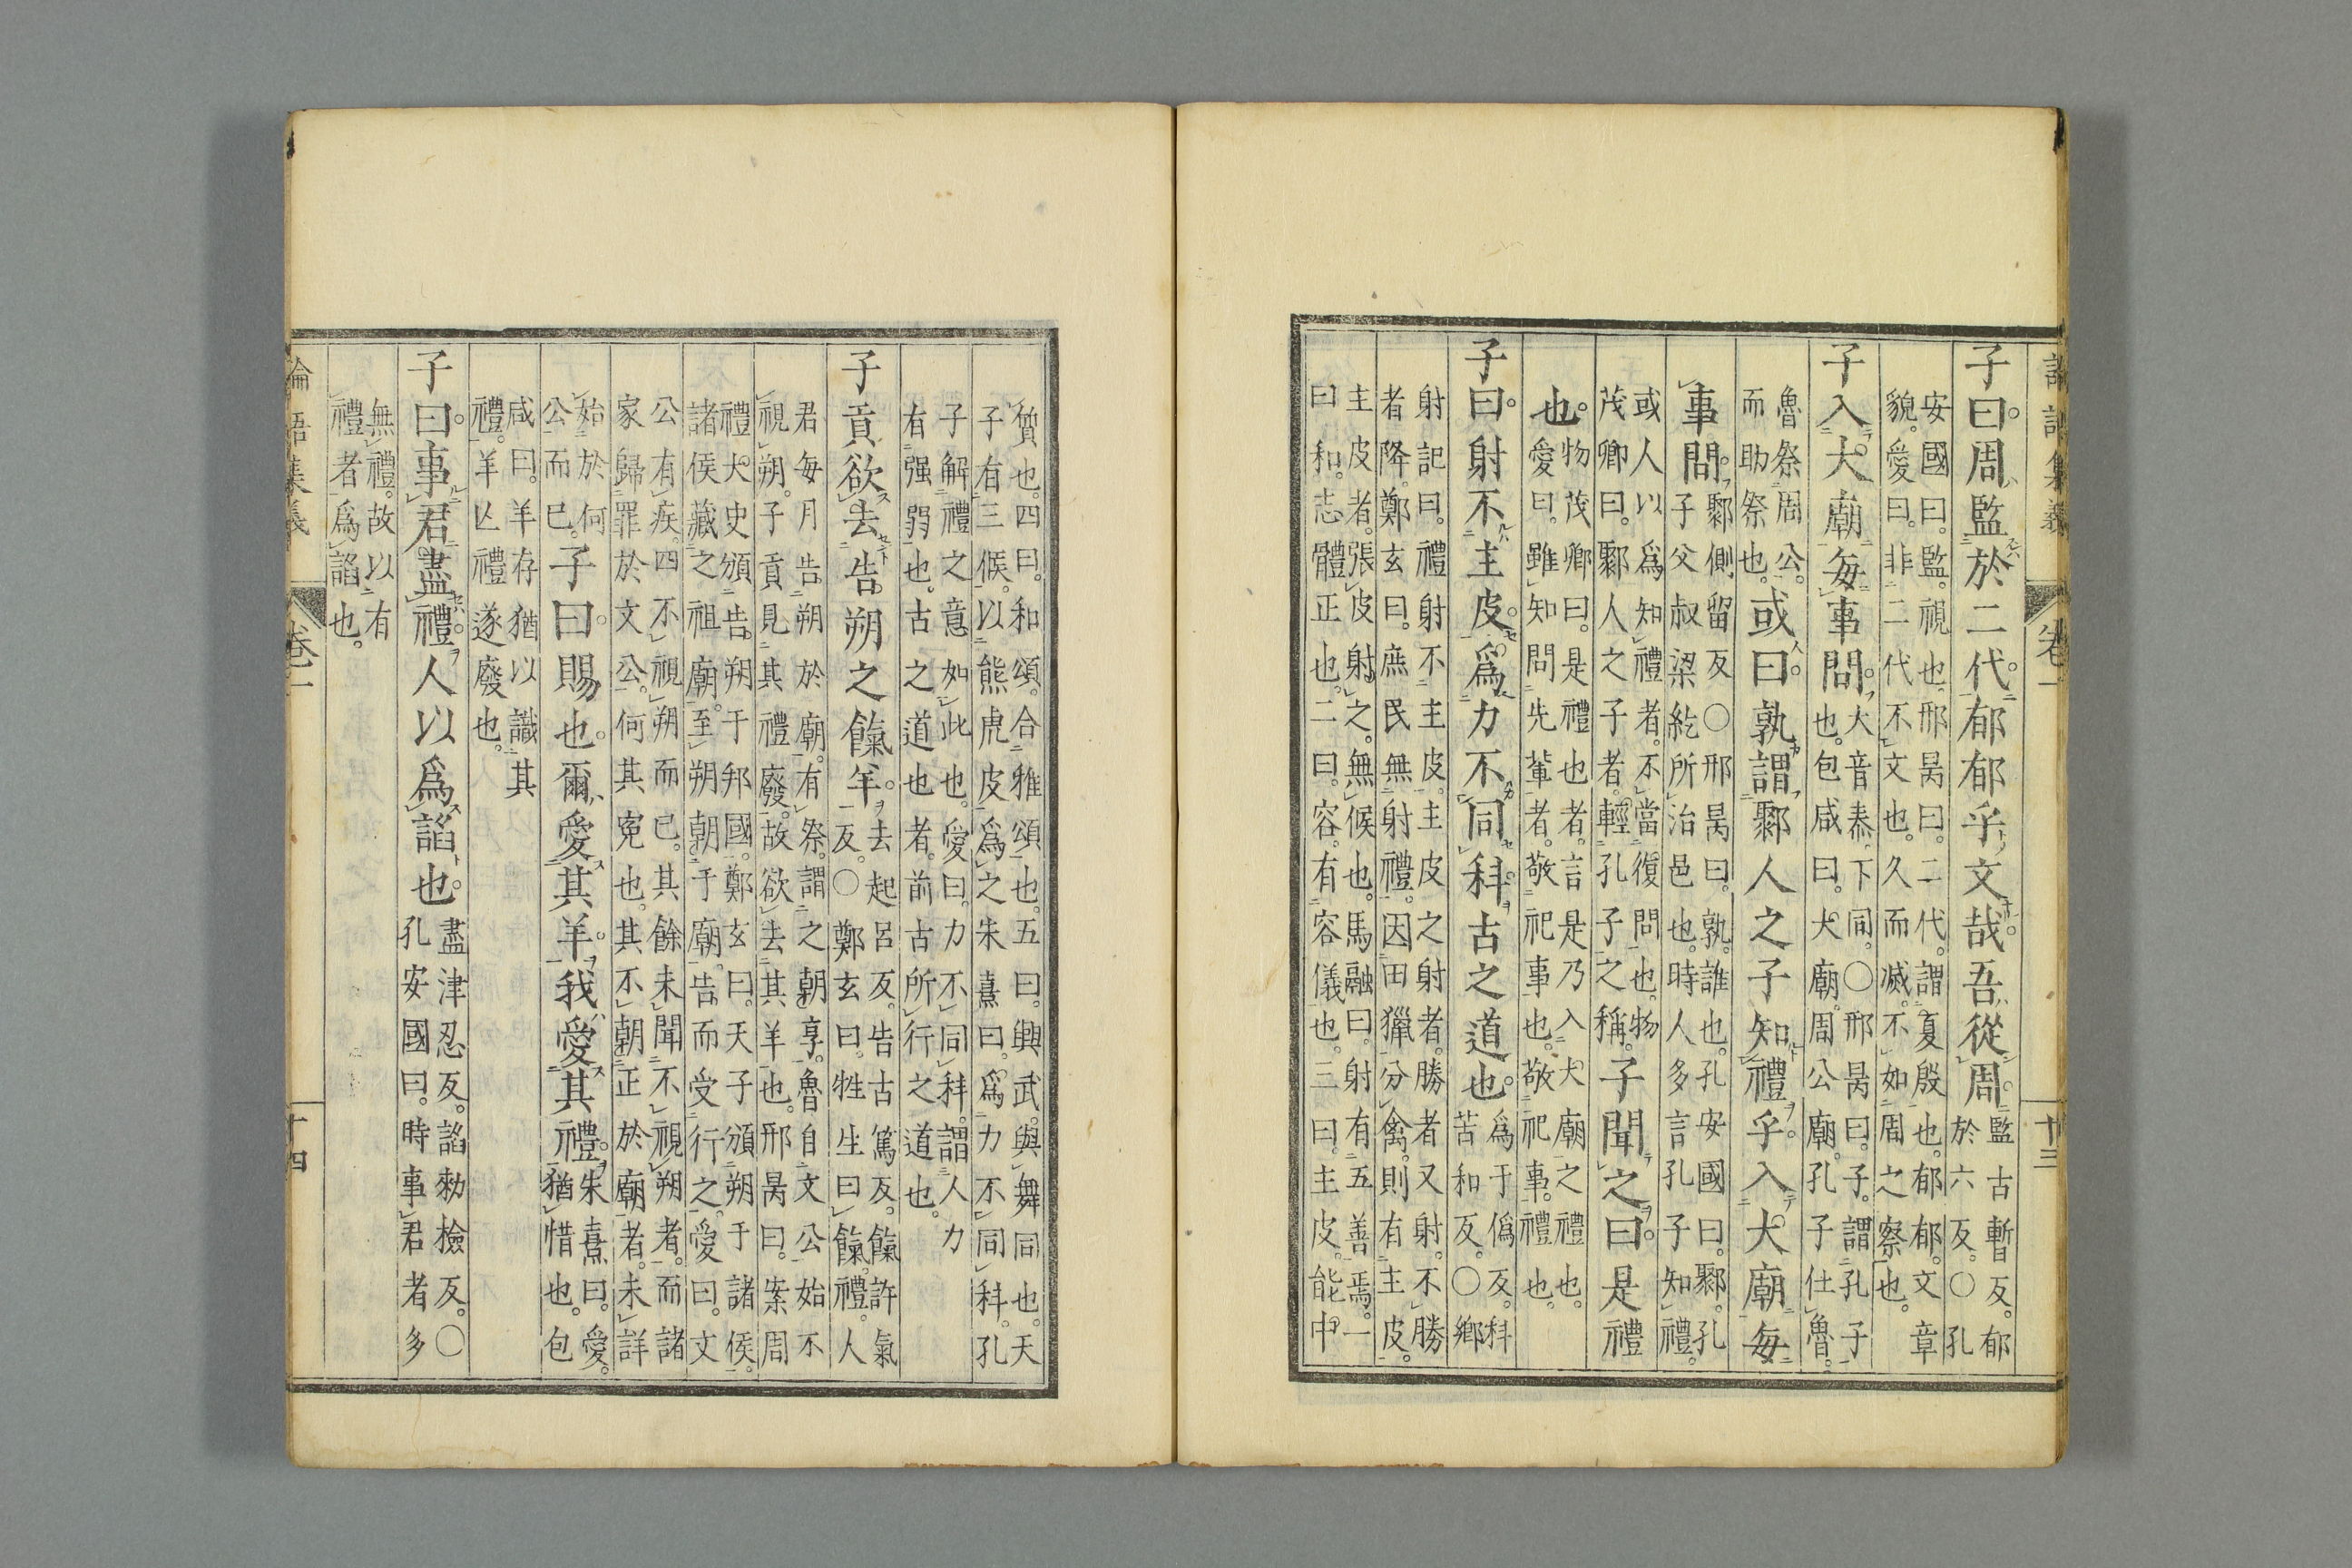 論語集義　卷一　十三
子曰。周監於二代。郁郁乎文哉。吾從周。
監古暫反。郁
於六反。〇孔
安國曰。監。視也。邢昺曰。二代。謂夏殷也。郁郁。文章
貌。愛曰。非二代不文也。久而滅。不如周之察也。
子入大廟。每事問。
大音泰。下同。〇邢昺曰。子。謂孔子
也。包咸曰。大廟。周公廟。孔子仕魯。
魯祭周公。
而助祭也。
或曰。孰謂鄹人之子知禮乎。入大廟。每
事問。
鄹側留反〇邢昺曰。孰。誰也。孔安國曰。鄹。孔
子父叔梁紇所治邑也。時人多言孔子知禮。
或人以爲知禮者。不當復問也。物
茂卿曰。鄹人之子者。輕孔子之稱。
子聞之曰。是禮
也。
物茂卿曰。是禮也者。言是乃入大廟之禮也。
愛曰。雖知問先輩者。敬祀事也。敬祀事。禮也。
子曰。射不主皮。爲力不同科。古之道也。
爲于僞反。科
苦和反。〇鄉
射記曰。禮射不主皮。主皮之射者。勝者又射。不勝
者降。鄭玄曰。庶民無射禮。因田獵分禽。則有主皮。
主皮者。張皮射之。無候也。馬融曰。射有五善焉。一
曰和。志體正也。二曰。容。有容儀也。三曰。主皮。能中
質也。四曰。和頌。合雅頌也。五曰。興武。與舞同也。天
子有三候。以熊虎皮爲之朱熹曰。爲力不同科。孔
子解禮之意如此也。愛曰。力不同科。謂人力
有强弱也。古之道也者。前古所行之道也。
子貢欲去告朔之餼羊。
去起呂反。告古篤反。餼許氣
反。〇鄭玄曰。牲生曰餼。禮。人
君每月告朔於廟。有祭。謂之朝享。魯自文公始不
視朔。子貢見其禮廢。故欲去其羊也。邢昺曰。案周
禮。大史頒告朔于邦國。鄭玄曰。天子頒朔于諸侯。
諸侯藏之祖廟。至朔朝于廟。告而受行之。愛曰。文
公有疾。四不視朔而已。其餘未聞不視朔者。而諸
家歸罪於文公。何其寃也。其不朝正於廟者。未詳
始於何
公而已。
子曰。賜也。爾愛其羊。我愛其禮。
朱熹曰。愛。
猶惜也。包
咸曰。羊存猶以識其
禮。羊亾禮遂廢也。
子曰。事君盡禮。人以爲諂也。
盡津忍反。諂勑檢反。〇
孔安國曰。時事君者多
無禮。故以有
禮者爲諂也。
論語集義　卷一　十四